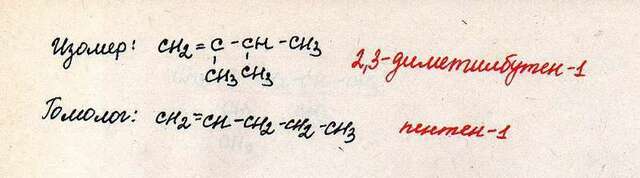 Изомер: CH2=C-CH-CH3 2,3-диметилбутен-1
CH3 CH3
Гомолог: CH2=CH-CH2-CH2-CH3 пентен-1